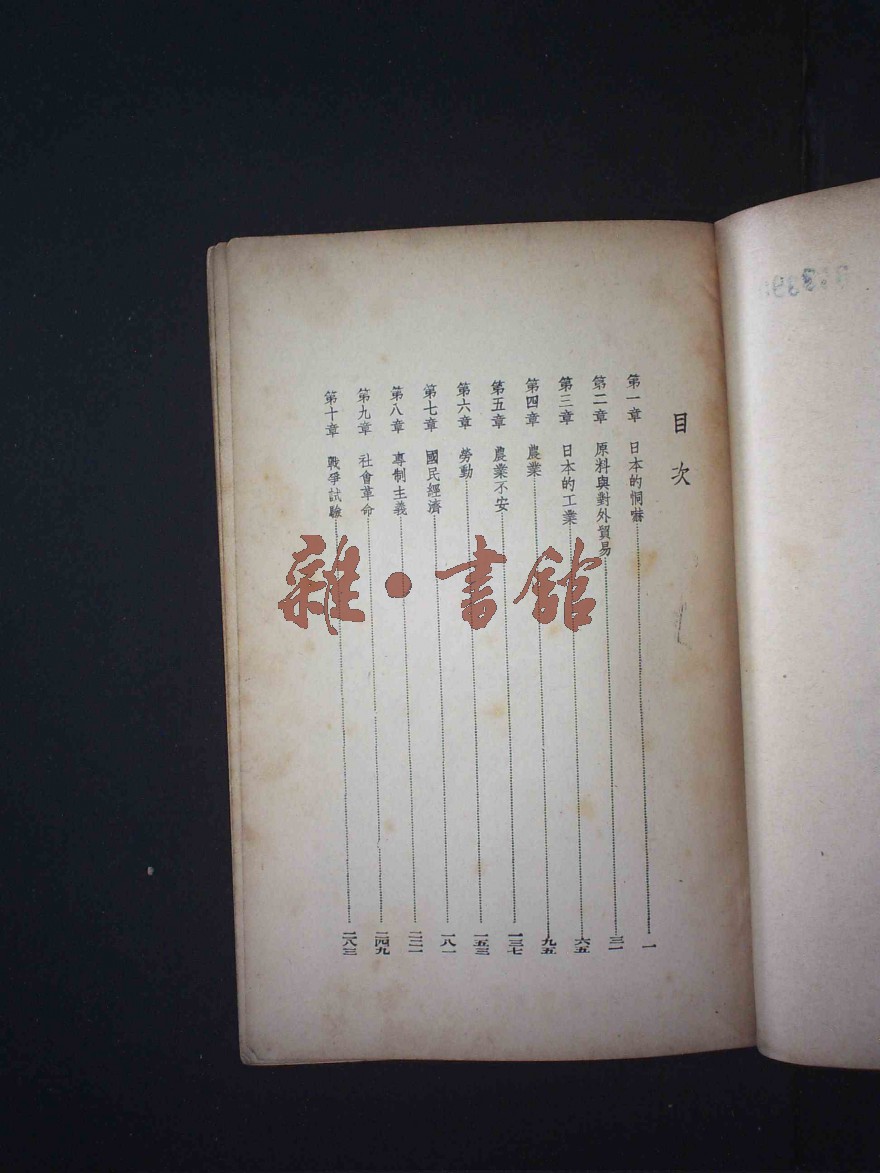 目次
第一章 日本的恫嚇 一
第二章 原料與對外貿易 三一
第三章 日本的工業 六五
第四章 農業 九五
第五章 農業不安 一三七
第六章 勞動 一五三
第七章 國民經濟 一八一
第八章 專制主義 二二一
第九章 社會革命 二四九
第十章 戰爭試驗 二八三
雜·書館